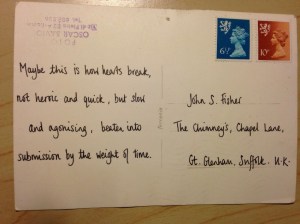 Maybe this is how hearts break,
not heroic and quick, but slow
and agonising, beaten into
submission by the weight of time.
6½P
10P
John S. Fisher
The Chimney's, Chapel Lane,
Gt. Glenham, Suffolk. U.K.